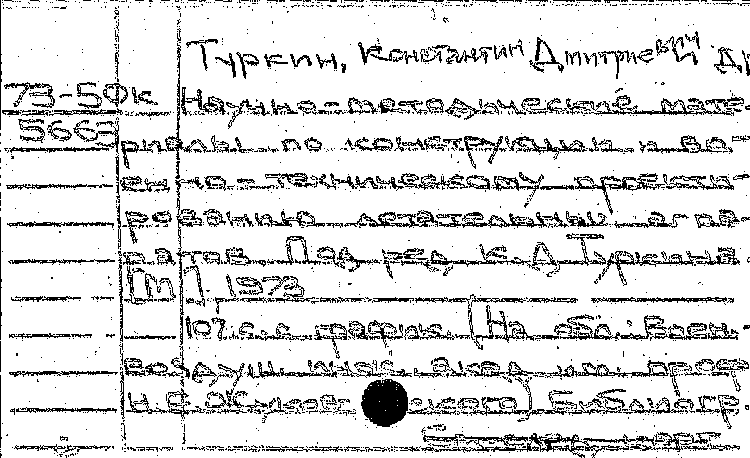 Туркин, Константин Дмитриевич др
73-5Фк Научно-методические мате-
5663 риалы по конструкции и во-
енно-техническому проекти-
рованию летательных аппа-
ратов. Под ред К. Д Туркина.
[М], 1973
107 с. с график. (На обл.: Воен.-
воздуш. инж. акад им. проф
Н. Е. Жуковского) Библиогр.